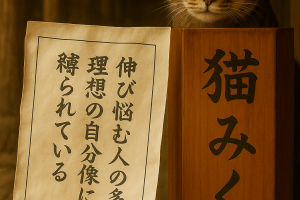 猫みく
伸び悩む人の多
理想の自分像に
縛られている